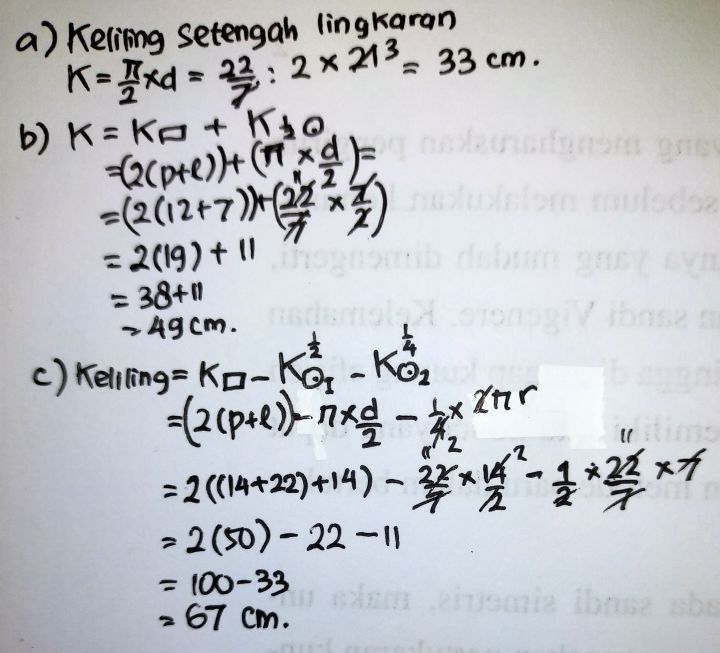 a) Keliling setengah lingkaran
K = π/2 x d = 22/7 : 2 x 21 3 = 33 cm.
b) K = K▭ + K½○
= (2(p+l)) + (π x d/2) =
= (2(12+7)) + (22/7 x 7/2) 11
= 2(19) + 11
= 38+11
= 49 cm.
c) Keliling = K▭ - K○₁ ½ - K○₂ ¼
= (2(p+l)) - π x d/2 - 1/4 2 x 2πr
= 2((14+22)+14) - 22/7 11 x 14/2 2 - 1/2 x 22/7 11 x 7
= 2(50) - 22 - 11
= 100-33
= 67 cm.